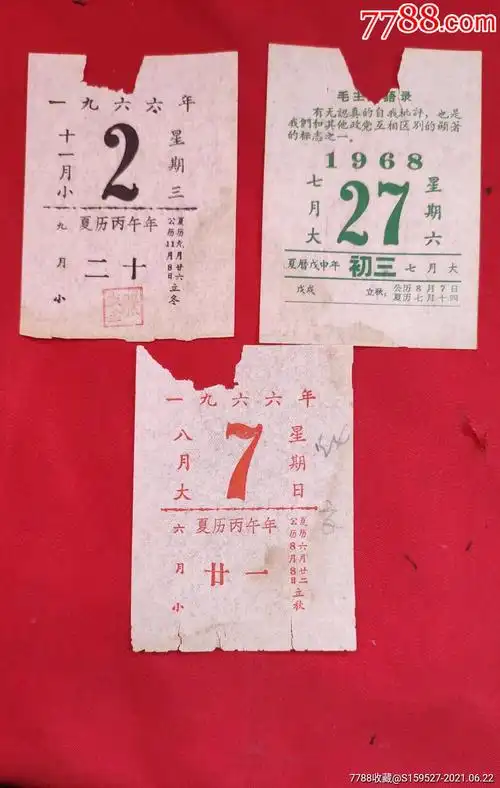 7788.com
一九六六年
十一月小
2
星期三
九月小
夏历丙午年
二十
夏历九月廿六
公历11月8日
立冬
毛主 語录
有无認真的自我批評，也是
我們和其他政党互相区别的顯著
的标志之一。
1968
七月大
27
星期六
夏曆戊申年 初三 七月大
戊戌
立秋：
公历8月7日
夏历七月十四
一九六六年
八月大
7
星期日
六月小
夏历丙午年
廿一
夏历六月廿二
公历8月8日
立秋
7788收藏@S159527-2021.06.22